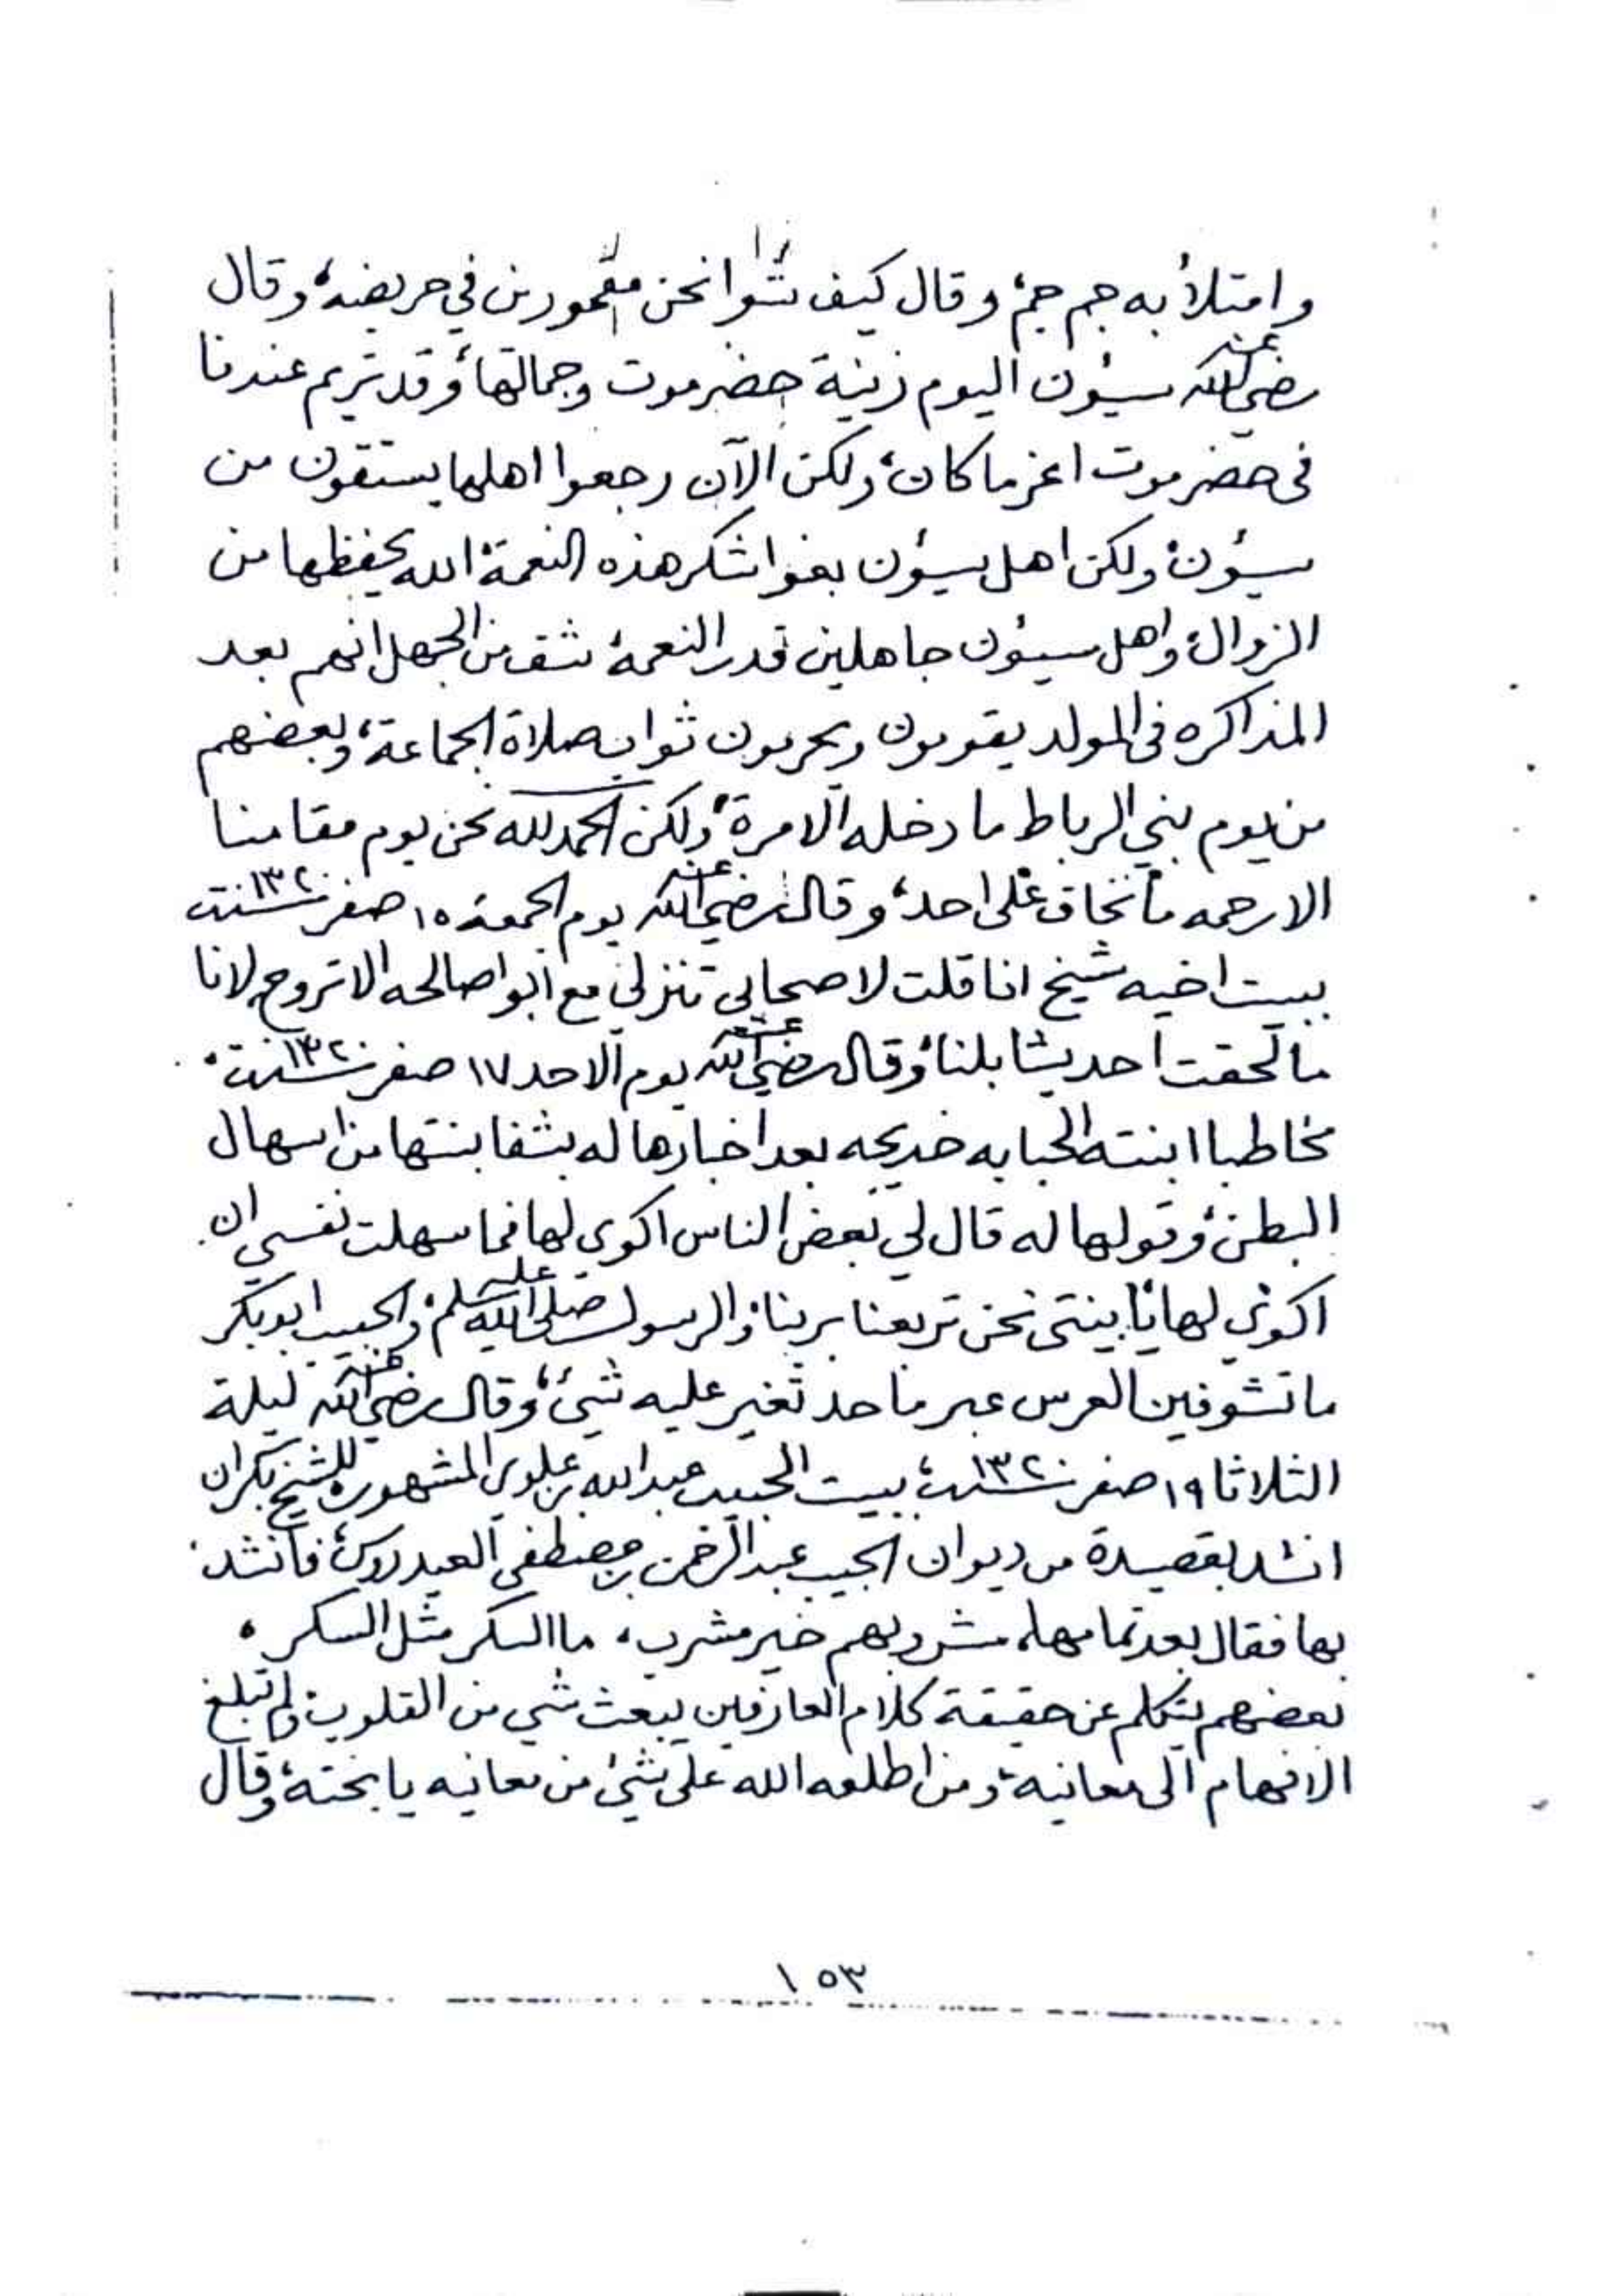 وامتلأ به جم جم، وقال كيف شوا نحن مقمورين في حريضه، وقال
رضي الله عنه سيؤن اليوم زينة حضرموت وجمالتها، وقد تريم عندنا
فى حضرموت اعز ما كان، ولكن الآن رجعوا اهلها يستقون من
سيؤن، ولكن اهل سيؤن بغوا شكر هذه النعمة، الله يحفظها من
الزوال، واهل سيئون جاهلين قدر النعمة، شف من الجهل انهم بعد
المذاكره فى المولد يقومون ويحرمون ثواب صلاة الجماعة، وبعضهم
من يوم بني الرباط ما دخله الا مرة، ولكن الحمد لله نحن يوم مقامنا
الا رحمه ما نخاف على احد، وقال رضي الله عنه يوم الجمعة ١٥ صفر سنة ١٣٢٠
ببيت اخيه شيخ انا قلت لاصحابى تنزلي مع ابوا صالحه الا تروح، لانا
ما لحقت احد يشابلنا، وقال رضي الله عنه يوم الاحد ١٧ صفر سنة ١٣٢٠
مخاطبا ابنته الحبابه خديجه بعد اخبارها له بشفا بنتها من اسهال
البطن، وقولها له قال لي بعض الناس اكوي لها فما سهلت نفسي ان
اكوي لها، يا بنتى نحن تربعنا بربنا، والرسول صلى الله عليه وسلم، والحبيب ابوبكر
ما تشوفين العرس عبر ما حد تغير عليه شئ، وقال رضي الله عنه ليلة
الثلاثا ١٩ صفر سنة ١٣٢٠، ببيت الحبيب عبدالله بن علوي المشهور، للشيخ بكران
انشد بقصيدة من ديوان الحبيب عبدالرحمن بن مصطفى العيدروس، فانشد
بها فقال بعد تمامها، مشروبهم خير مشرب، ما السكر مثل السكر،
بعضهم يتكلم عن حقيقة كلام العارفين يبعث شي من القلوب، ولم تبلغ
الافهام الى معانيه، ومن اطلعه الله على شئ من معانيه يا بخته، وقال
١٥٣